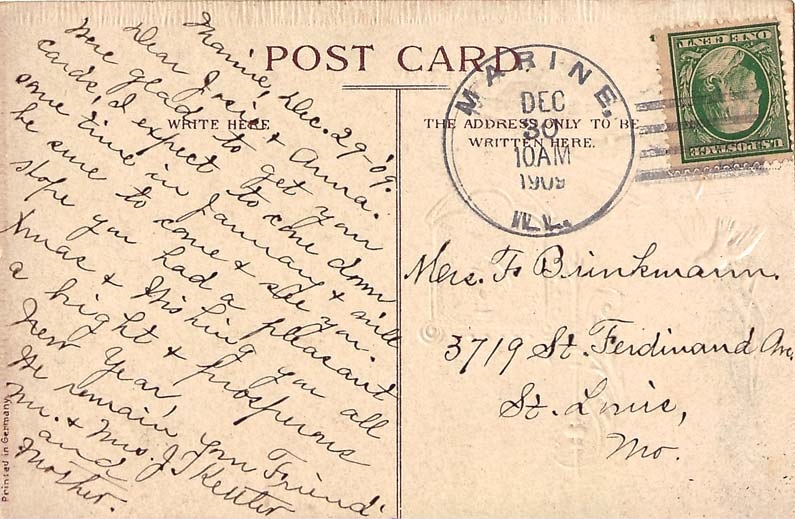 POST CARD
WRITE HERE
THE ADDRESS ONLY TO BE
WRITTEN HERE.
Marine, Dec. 29-'09.
Dear Josie & Anna.
Were glad to get your
cards, I expect to come down
some time in January & will
be sure to come & see you.
Hope you had a pleasant
Xmas & Wishing you all
a bright & prosperous
New Year,
We remain your Friend
Mr. & Mrs. J.
and
Mother.
Printed in Germany.
MARINE,
DEC
30
10AM
1909
ILL.
U.S.POSTAGE
ONE CENT
Mrs. F. Brinkmann.
3719 St. Ferdinand Ave,
St. Louis,
Mo.